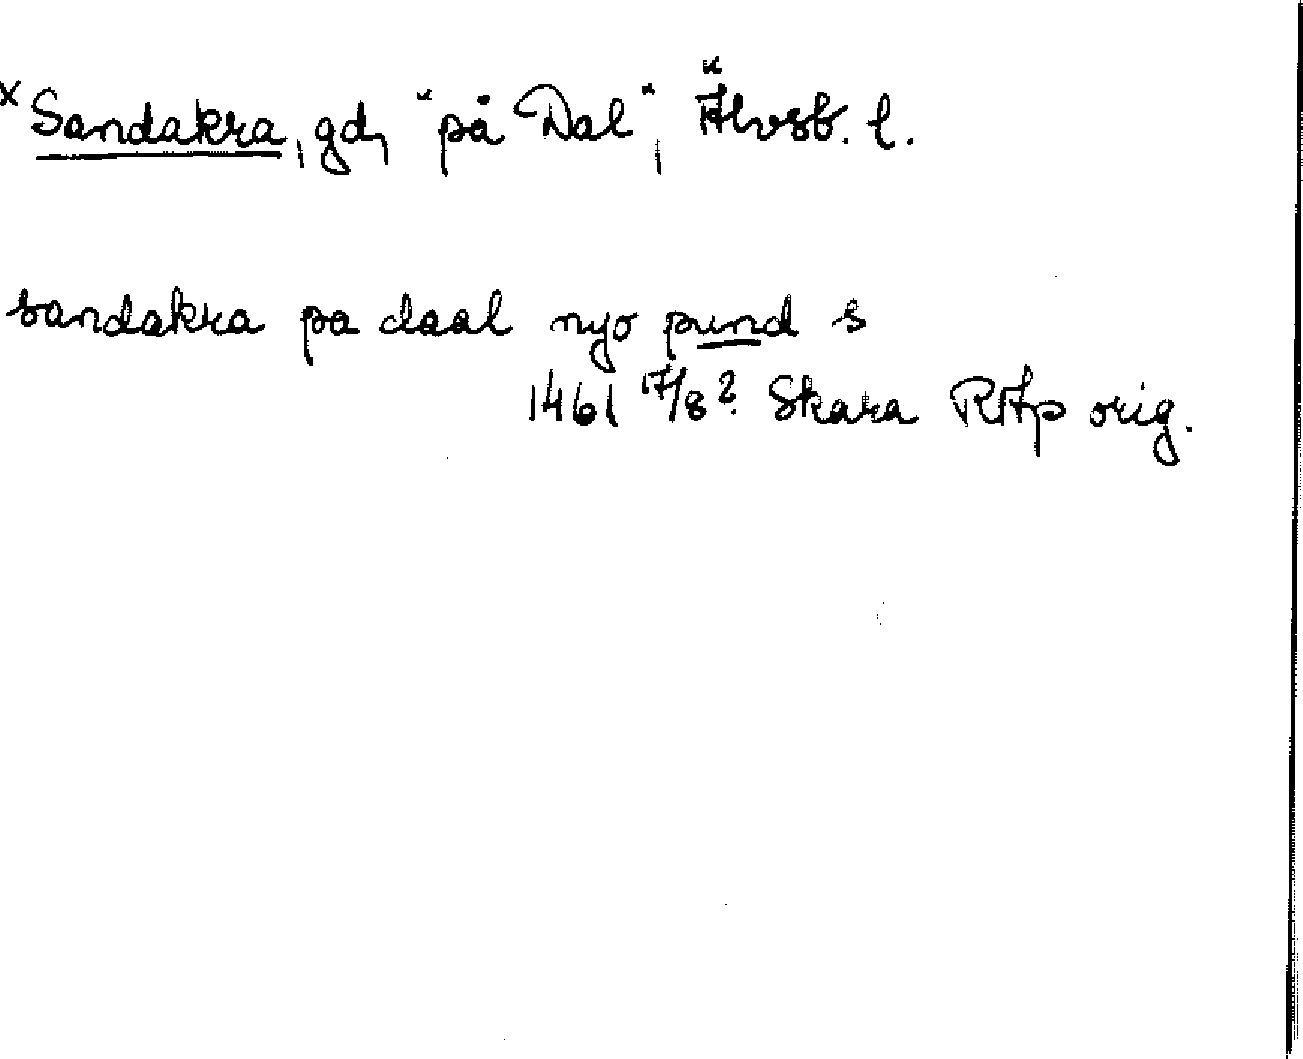 x Sandakra, gd, "på Dal", Älvsb. l.
sandakra pa daal nyo pund s
1461 17/8? Skara RAp orig.